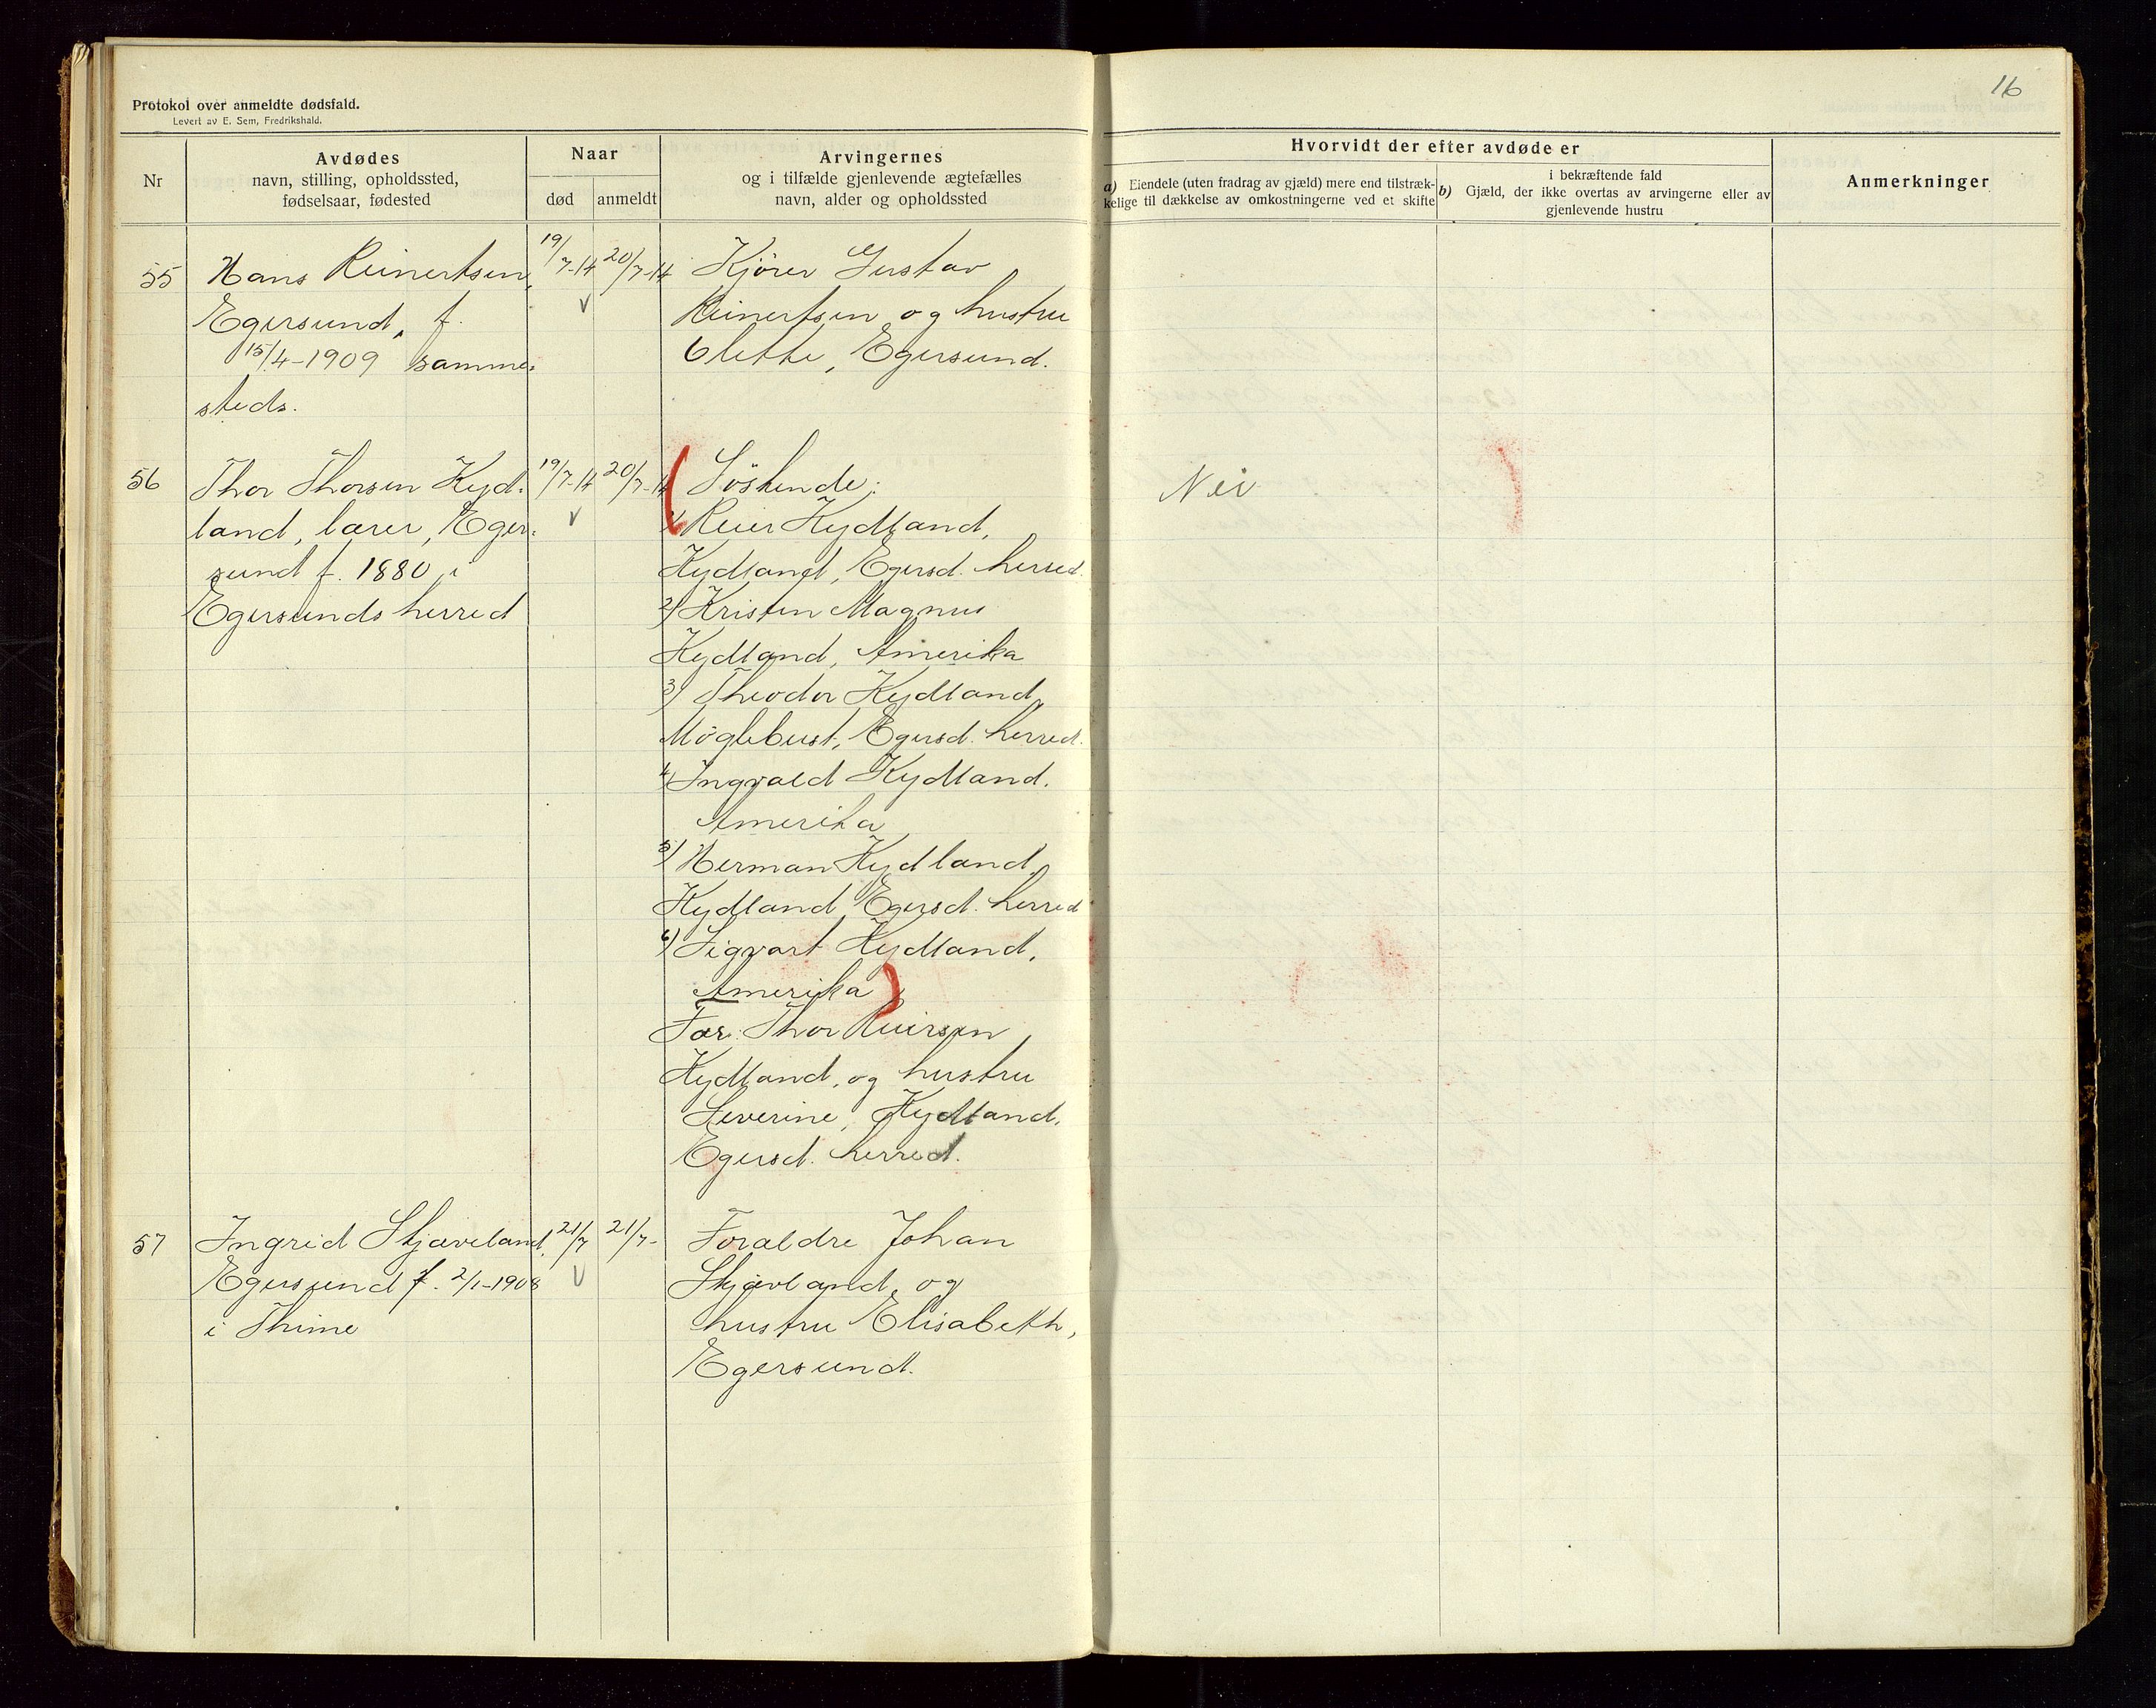 16
Protokol over anmeldte dødsfald.
Levert av E. Sem, Fredrikshald.
Nr
Avdødes
navn, stilling, opholdssted,
fødselsaar, fødested
Naar
død
anmeldt
Arvingernes
og i tilfælde gjenlevende ægtefælles
navn, alder og opholdssted
Hvorvidt der efter avdøde er
a) Eiendele (uten fradrag av gjæld) mere end tilstræk-
kelige til dækkelse av omkostningerne ved et skifte
i bekræftende fald
b) Gjæld, der ikke overtas av arvingerne eller av
gjenlevende hustru
Anmerkninger
55
Hans Reinertsen,
Egersund, f.
15/4-1909 samme-
steds.
19/7-14
20/7-14
Kjörer Gustav
Reinertsen og hustru
Olette, Egersund.
56
Thor Thorsen Kyd-
land, lærer, Eger-
sund f. 1880 i
Egersunds herred
19/7-14
20/7-14
Söskende:
1) Reier Kydland,
Kydland, Egersd. herred.
2) Kristen Magnus
Kydland, Amerika
3) Theodor Kydland,
Möglebust, Egersd. herred.
4) Ingvald Kydland.
Amerika
5) Herman Kydland,
Kydland, Egersd. herred
6) Sigvart Kydland,
Amerika
Far: Thor Reiersen
Kydland, og hustru
Severine, Kydland.
Egersd. herred.
Nei
57
Ingrid Skjæveland,
Egersund f. 2/1-1908
i Thime
21/7
21/7-
Forældre Johan
Skjævland og
hustru Elisabeth,
Egersund.